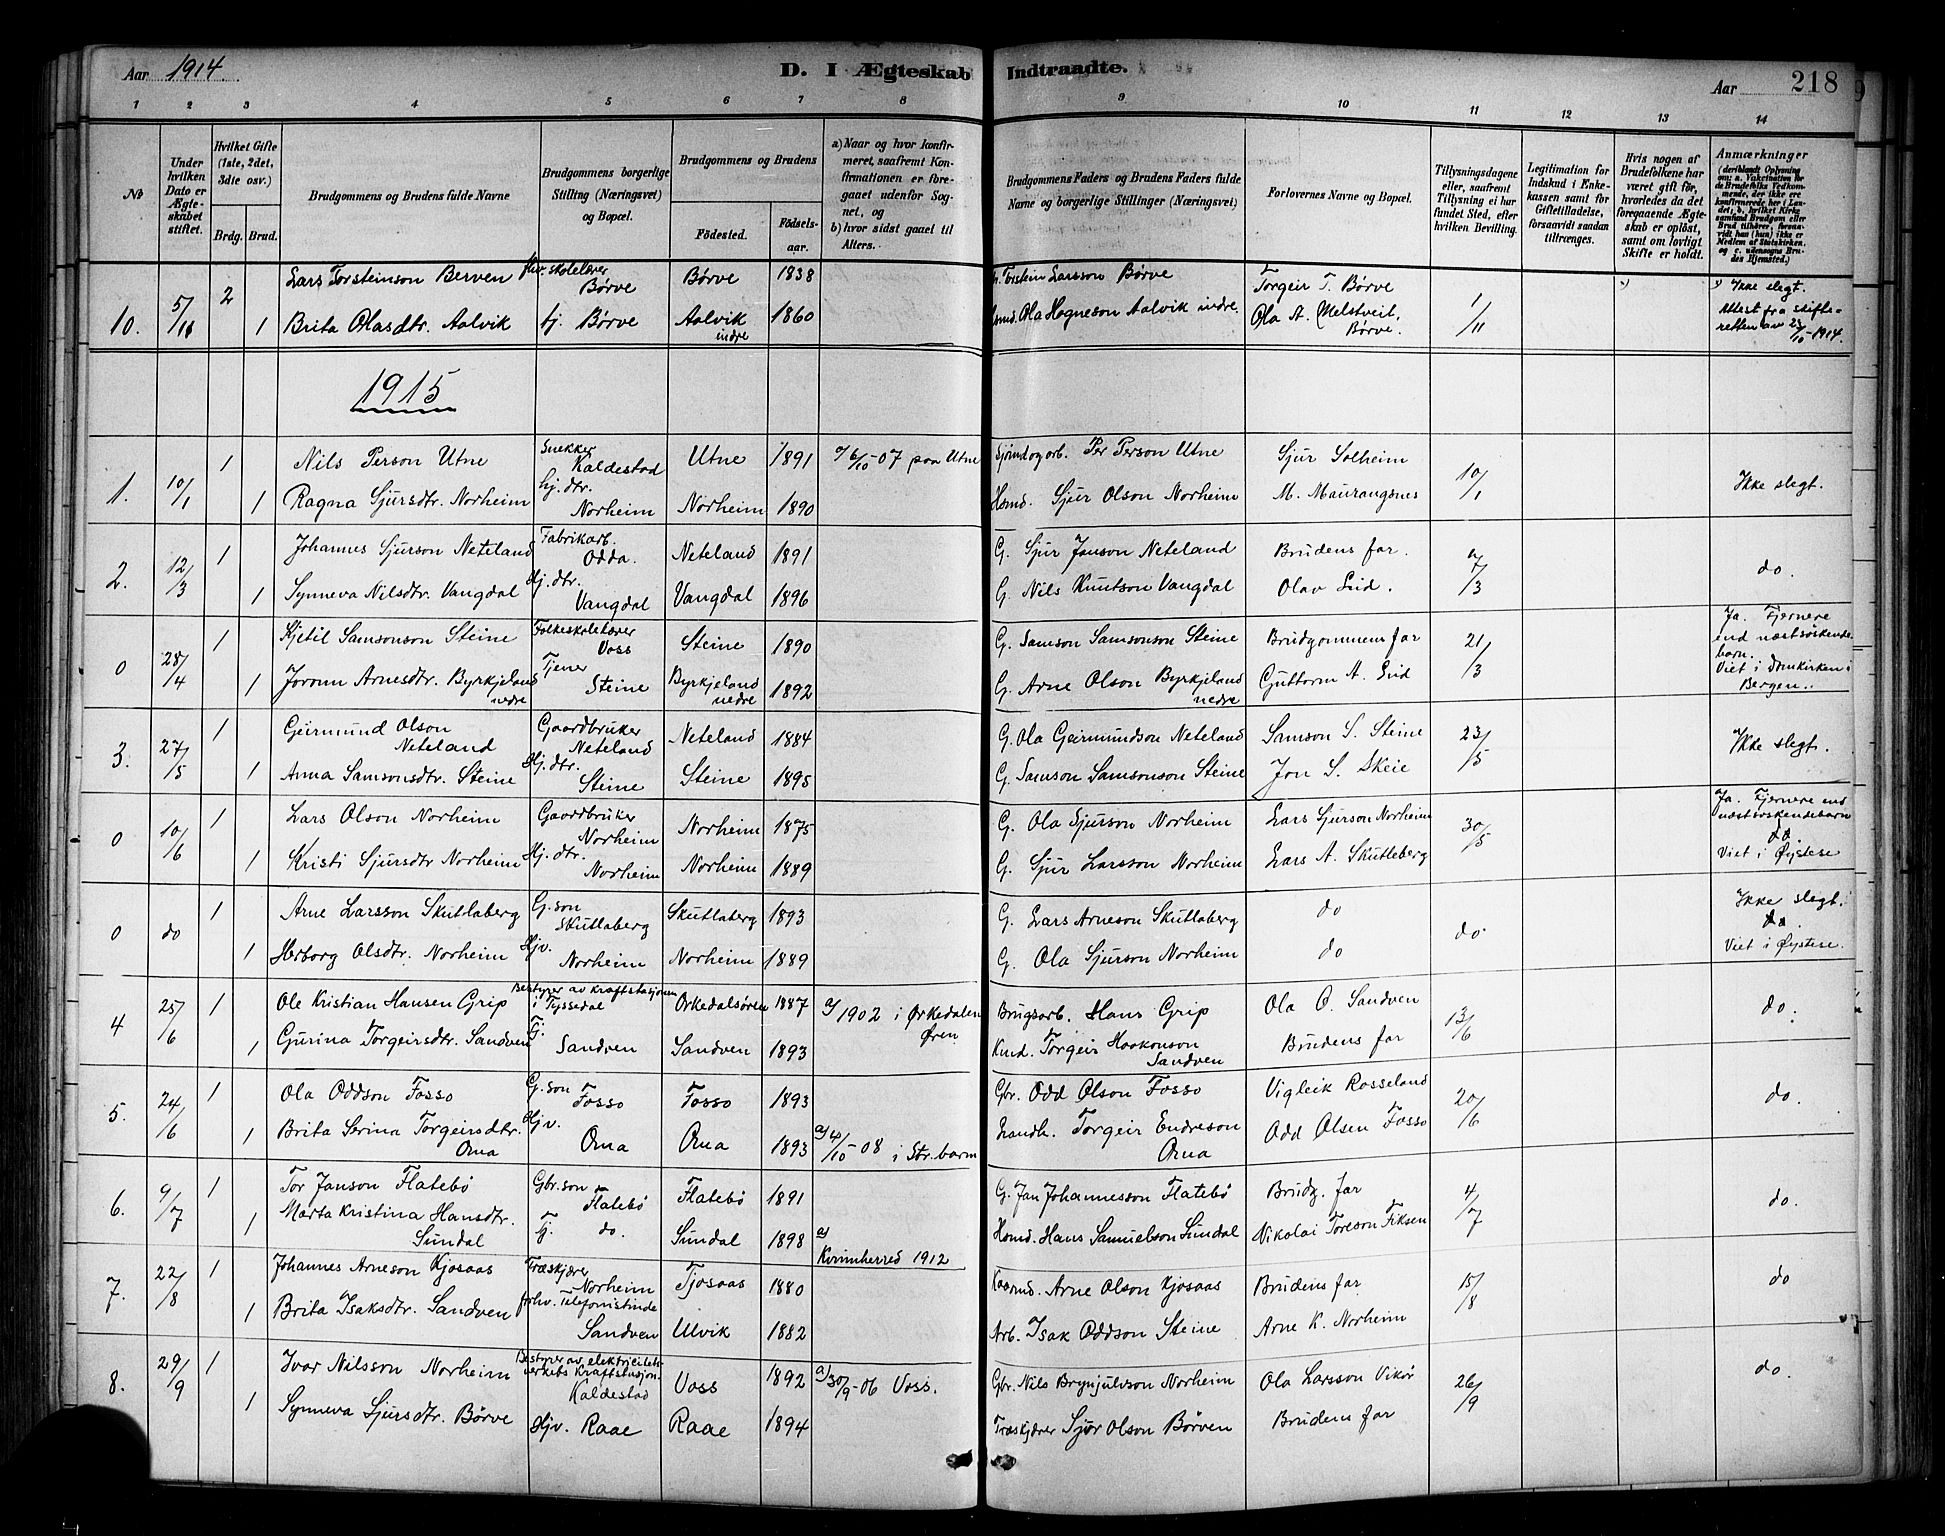 Aar 1914. D. I Ægteskab Indtraadte. Aar 218
1 2 3 4 5 6 7 8 9 10 11 12 13 14
No
Under hvilken Dato er Ægteskabet stiftet.
Hvilket Gifte (1ste, 2det, 3die osv.)
Brdg. Brud.
Brudgommens og Brudens fulde Navne
Brudgommens borgerlige Stilling (Næringsvei) og Bopæl.
Brudgommens og Brudens
Födested. Födselsaar.
a) Naar og hvor konfirmeret, saafremt Konfirmationen er foregaaet udenför Sognet, og
b) hvor sidst gaaet til Alters.
Brudgommens Faders og Brudens Faders fulde Navne og borgerlige Stillinger (Næringsvei)
Forlovernes Navne og Bopæl.
Tillysningsdagene eller, saafremt Tillysning ei har fundet Sted, efter hvilken Bevilling.
Legitimation for Indskud i Enkekassen samt for Giftetilladelse, forsaavidt saadan tiltrænges.
Hvis nogen af Brudefolkene har været gift för, hvorledes da det foregaaende Ægteskab er oplöst, samt om lovligt Skifte er holdt.
Anmærkninger
10. 5/11 2 Lars Torsteinson Berven fhv. skolelærer Börve Börve 1838 Torstein Larsson Börve Torgeir T. Börve 1/11 Ikke slegt.
1 Brita Olasdtr. Aalvik tj. Börve Aalvik indre 1860 Ola Hogneson Aalvik indre. Ola A. Melstveit, Börve. Attest fra skifteretten av 23/10-1914.
1915
1. 10/1 1 Nils Person Utne Snekker Kaldestad Utne 1891 a/ 6/10-07 paa Utne Per Person Utne Sjur Solheim 10/1 Ikke slegt.
1 Ragna Sjursdtr. Norheim hj. dtr. Norheim Norheim 1890 Hsmd. Sjur Olson Norheim M. Maurangsnes
2. 12/3 1 Johannes Sjurson Neteland Fabrikarb. Odda. Neteland 1891 G. Sjur Janson Neteland Brudens far. 7/3 do.
1 Synneva Nilsdtr. Vangdal Hj. dtr. Vangdal Vangdal 1896 G. Nils Knutson Vangdal Olav Eid.
0 28/4 1 Kjetil Samsonson Steine Folkeskolelærer Voss Steine 1890 G. Samson Samsonson Steine Brudgommens far 21/3 Ja. Fjernere end næstsöskendebarn. Viet i domkirken i Bergen.
1 Joronn Arnesdtr. Byrkjeland nedre Tjener Steine Byrkjeland nedre 1892 G. Arne Olson Byrkjeland nedre Guttorm A. Eid
3. 27/5 1 Geirmund Olson Neteland Gaardbruker Neteland Neteland 1884 G. Ola Geirmundson Neteland Samson S. Steine 23/5 Ikke slegt.
1 Anna Samsonsdtr. Steine Hj. dtr. Steine Steine 1895 G. Samson Samsonson Steine Jon S. Skeie
0 10/6 1 Lars Olson Norheim Gaardbruker Norheim Norheim 1875 G. Ola Sjurson Norheim Lars Sjurson Norheim 30/5 Ja. Fjernere end næstsöskendebarn Viet i Öystese
1 Kristi Sjursdtr Norheim Hj. dtr. Norheim Norheim 1889 G. Sjur Larsson Norheim Lars A. Skutleberg
0 do 1 Arne Larsson Skutlaberg G. son Skutlaberg Skutlaberg 1893 G. Lars Arneson Skutlaberg do do. Ikke slegt. Viet i Öystese.
1 Herborg Olsdtr. Norheim Hjv. Norheim Norheim 1889 G. Ola Sjurson Norheim do
4 25/6 1 Ole Kristian Hansen Grip Bestyrer av kraftstasjonen i Tyssedal Orkedalsören 1887 a/ 1902 i Orkedalen Ören Brugsarb. Hans Grip Ola O. Sandven 13/6 do.
1 Gurina Torgeirsdtr. Sandven Tj. Sandven Sandven 1893 Kmd. Torgeir Haakonson Sandven Brudens far
5. 24/6 1 Ola Oddson Fosso G. son Fosso Fosso 1893 Gbr. Odd Olson Fosso Vigleik Rosseland 20/6 do.
1 Brita Serina Torgeirsdtr. Oma Hjv. Oma Oma 1893 a/ 4/10-08 i Str.barm Landh. Torgeir Endreson Oma Odd Olsen Fosso
6. 9/7 1 Tor Janson Flatebö Gbr. son Flatebö Flatebö 1891 G. Jan Johannesson Flatebö Brudg. far 4/7 do.
1 Marta Kristina Hansdtr. Sundal Tj. do. Sundal 1898 a/ Kvinnherred 1912 Hsmd. Hans Samuelson Sundal Nikolai Toreson Fiksen
7. 22/8 1 Johannes Arneson Kjosaas Træskjærer Norheim Tjosaas 1880 Arne Olson Kjosaas Brudens far 15/8 do
1 Brita Isaksdtr. Sandven forhv. Telefonistinde Sandven Ulvik 1882 Arb. Isak Oddson Steine Arne K. Norheim
8. 29/9 1 Ivar Nilsson Norheim Bestyrer av elektricitetsverkets Kraftstasjon. Kaldestad Voss 1892 a/ 30/9-06 Voss. Gbr. Nils Brynjulvson Norheim Ola Larsson Vikör 26/9 do.
1 Synneva Sjursdtr. Börve Hjv. Raae Raae 1894 Træskjærer Sjur Olson Börven Brudens far